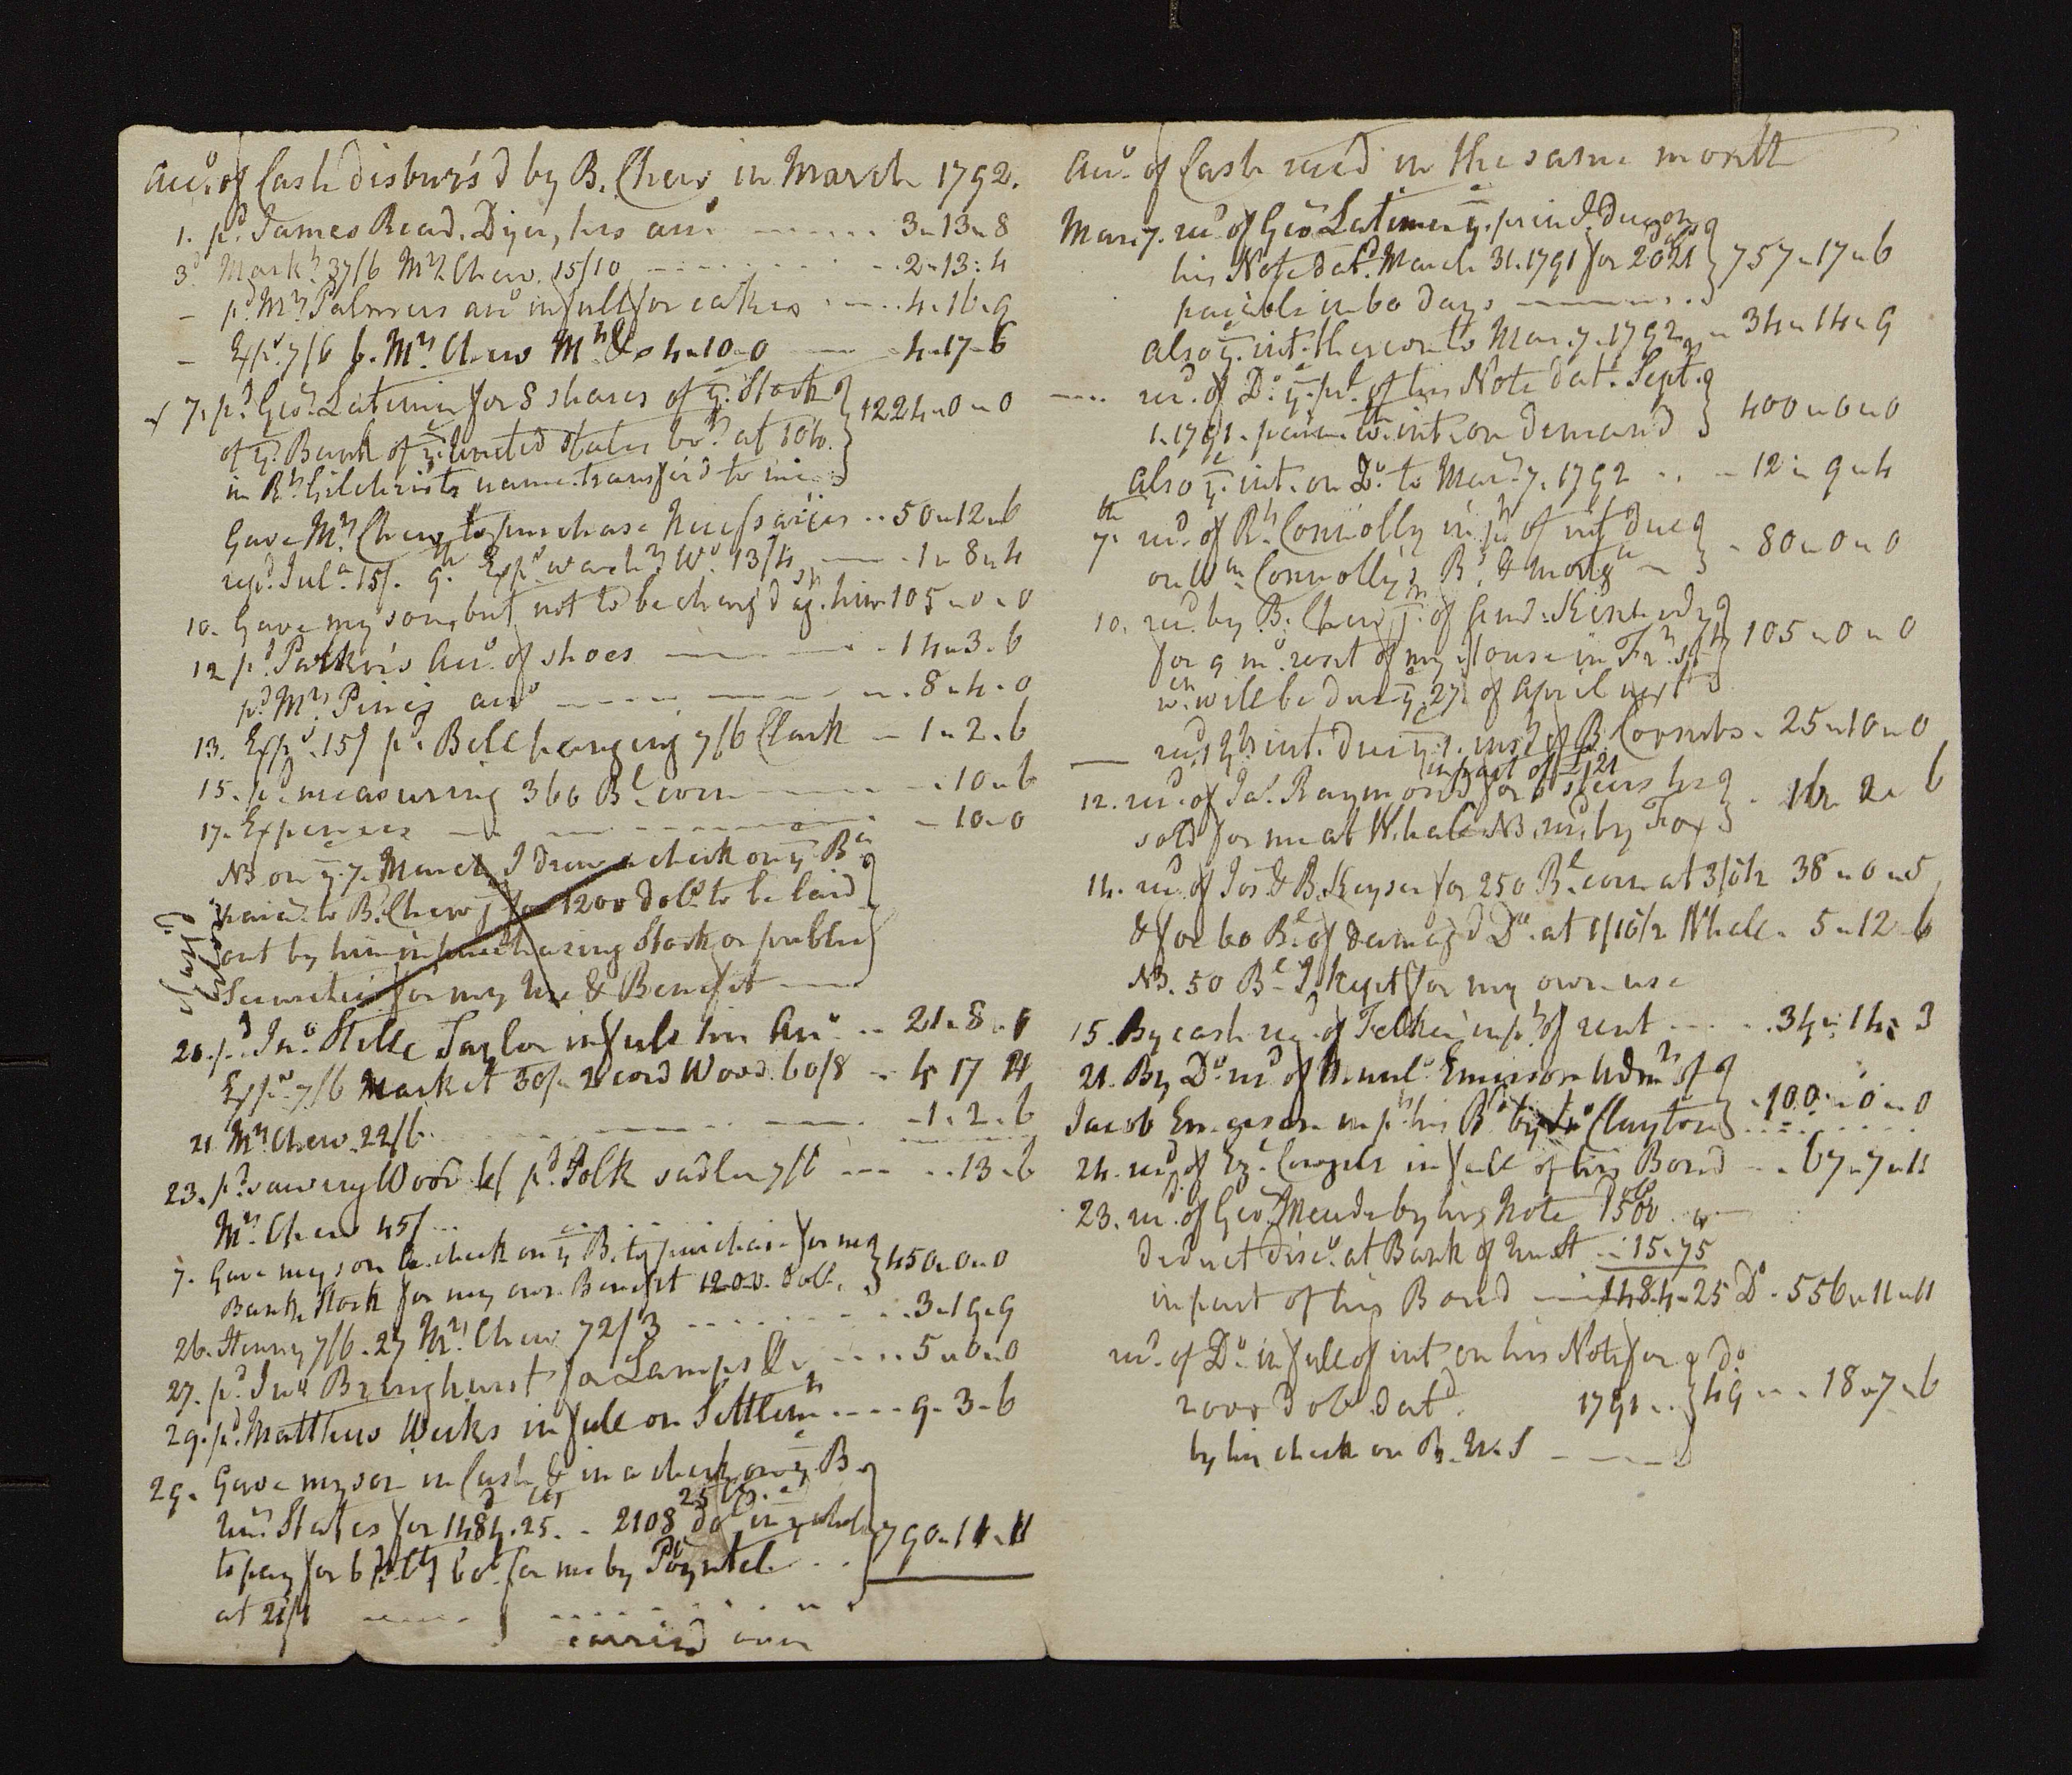 Accot. of Cash disburs'd by B. Chew in March 1792.
1. pd. James Read. Dyer, his acco ------ 3"13"8
3d Markt. 37/6 Mrs. Chew. 15/10 ------ 2"13"4
- pd. Mrs. Palmers acco in full for cakes ---- 4"16"9
- Exps. 7/6 Mrs. Chew 4"10"0 ---- 4"17"6
7. pd. Geo. Latimer for 8 shares of ye. Stock
of ye. Bank of ye. United States at
in Rt. Gilchrists name transfer'd to me
1224"0"0
Gave Mrs. Chew to purchase Necessaries .. 50"12"6
15/. 9. Exps. Wo. 13/4 ---- 1"8"4
10. Gave my son, but not to be charg'd agt. him 105"0"0
12 pd. acco. of shoes ------ 14"3"6
pd. Mrs. Pines acco ------ 8"4"0
13. Exps. 15/ pd. Bell hanging 7/6 Clark -- 1"2"6
15. pd. measuring 360 Bl. corn ------ 10"6
17. Expences ------ 10"0
NB on ye. 7. March I drew a check on ye Ba
to B. Chew j for 1200 dolls. to be laid
out by him in purchasing Stock or publick
Securities for my Use & Benefit ----
20. pd. Jno. Stille Taylor in full his Acco .. 21"8"
Exps. 7/6 Market 30/ 2 cord Wood. 60/8 -- 4 17
21 Mrs. Chew. 22/6 ------ 1"2"6
23. pd. sawing Wood 6/ pd. Polk sadler 7/6 ---- 13"6
Mrs. Chew 45/ ...
7. Gave my son a check on ye B. to purchase for me
Bank Stock for my own Benefit 1200. dolls.
450"0"0
26. Henry 7/6. 27 Mrs. Chew 72/3 ------ 3"19"9
27. pd. Jno Bringhurst for Lamps &c ---- 5"0"0
29. pd. Matthew Weeks in full on Settlemt ---- 9"3"6
29. Gave my son in Cash & in a check on ye B
Und. States for 1484.25 .. 2108 25 dolls. in ye whole
to pay for 6 for me by Poyntel
at 21/
790"11"11
carried over
Acco. of Cash rec'd in the same month
Mar. 7. recd. of Geo. Latimer ye. prinl. due on
his Note datd. March 31. 1791 for 2021
payable in 60 days ------
757"17"6
also ye. int. thereon to Mar. 7. 1792 " 34"14"9
---- recd. of Do. ye. prl. of his Note datd. Sept.
1. 1791. wth. int. on demand
400"0"0
also ye. int. on Do. to Mar. 7. 1792 .. - 12"9"4
7th recd. of Rt. Connolly in pt. of int. due
on Wm Connolly's Bd. & Mortge
80"0"0
10. recd. by B. Chew jr. of Andw. Kennedy
for 9 mo. rent of my House in Frt. St
wch will be due ye. 27 of April next
105"0"0
---- recd. int. due ye. 1. inst. of B. Coombs. 25"10"0
12. recd. of Jas. Raymond for 6 steers he
in part of £21
sold for me at Whale NB. recd. by Fox
16"2"6
14. recd. of Jos. & B. Keyser for 250 Bl. corn at 3/0½ 38"0"5
& for 60 Bl. of damag'd Do. at 1/10½ Whale. 5"12"6
NB. 50 Bl. I kept for my own use
15. By cash recd. of in pt. of rent .... 34"14"3
21. By Do. recd. of Emerson Admr. of
Jacob Emerson in pt. his Bd. by Jno Clayton
100"0"0
24. recd. of Ezl. in full of his Bond -- 67"7"11
23. recd. of Geo. Meade by his Note 1500
deduct disct. at Bank of Un. St .. 15.75
in part of his Bond ---- 1484.25 D. 556"11"11
recd. of Do. in full of int on his Note for
2000 dolls. datd. 1791 ..
by his check on B. U. S ----
do. 49 " " 18"7"6